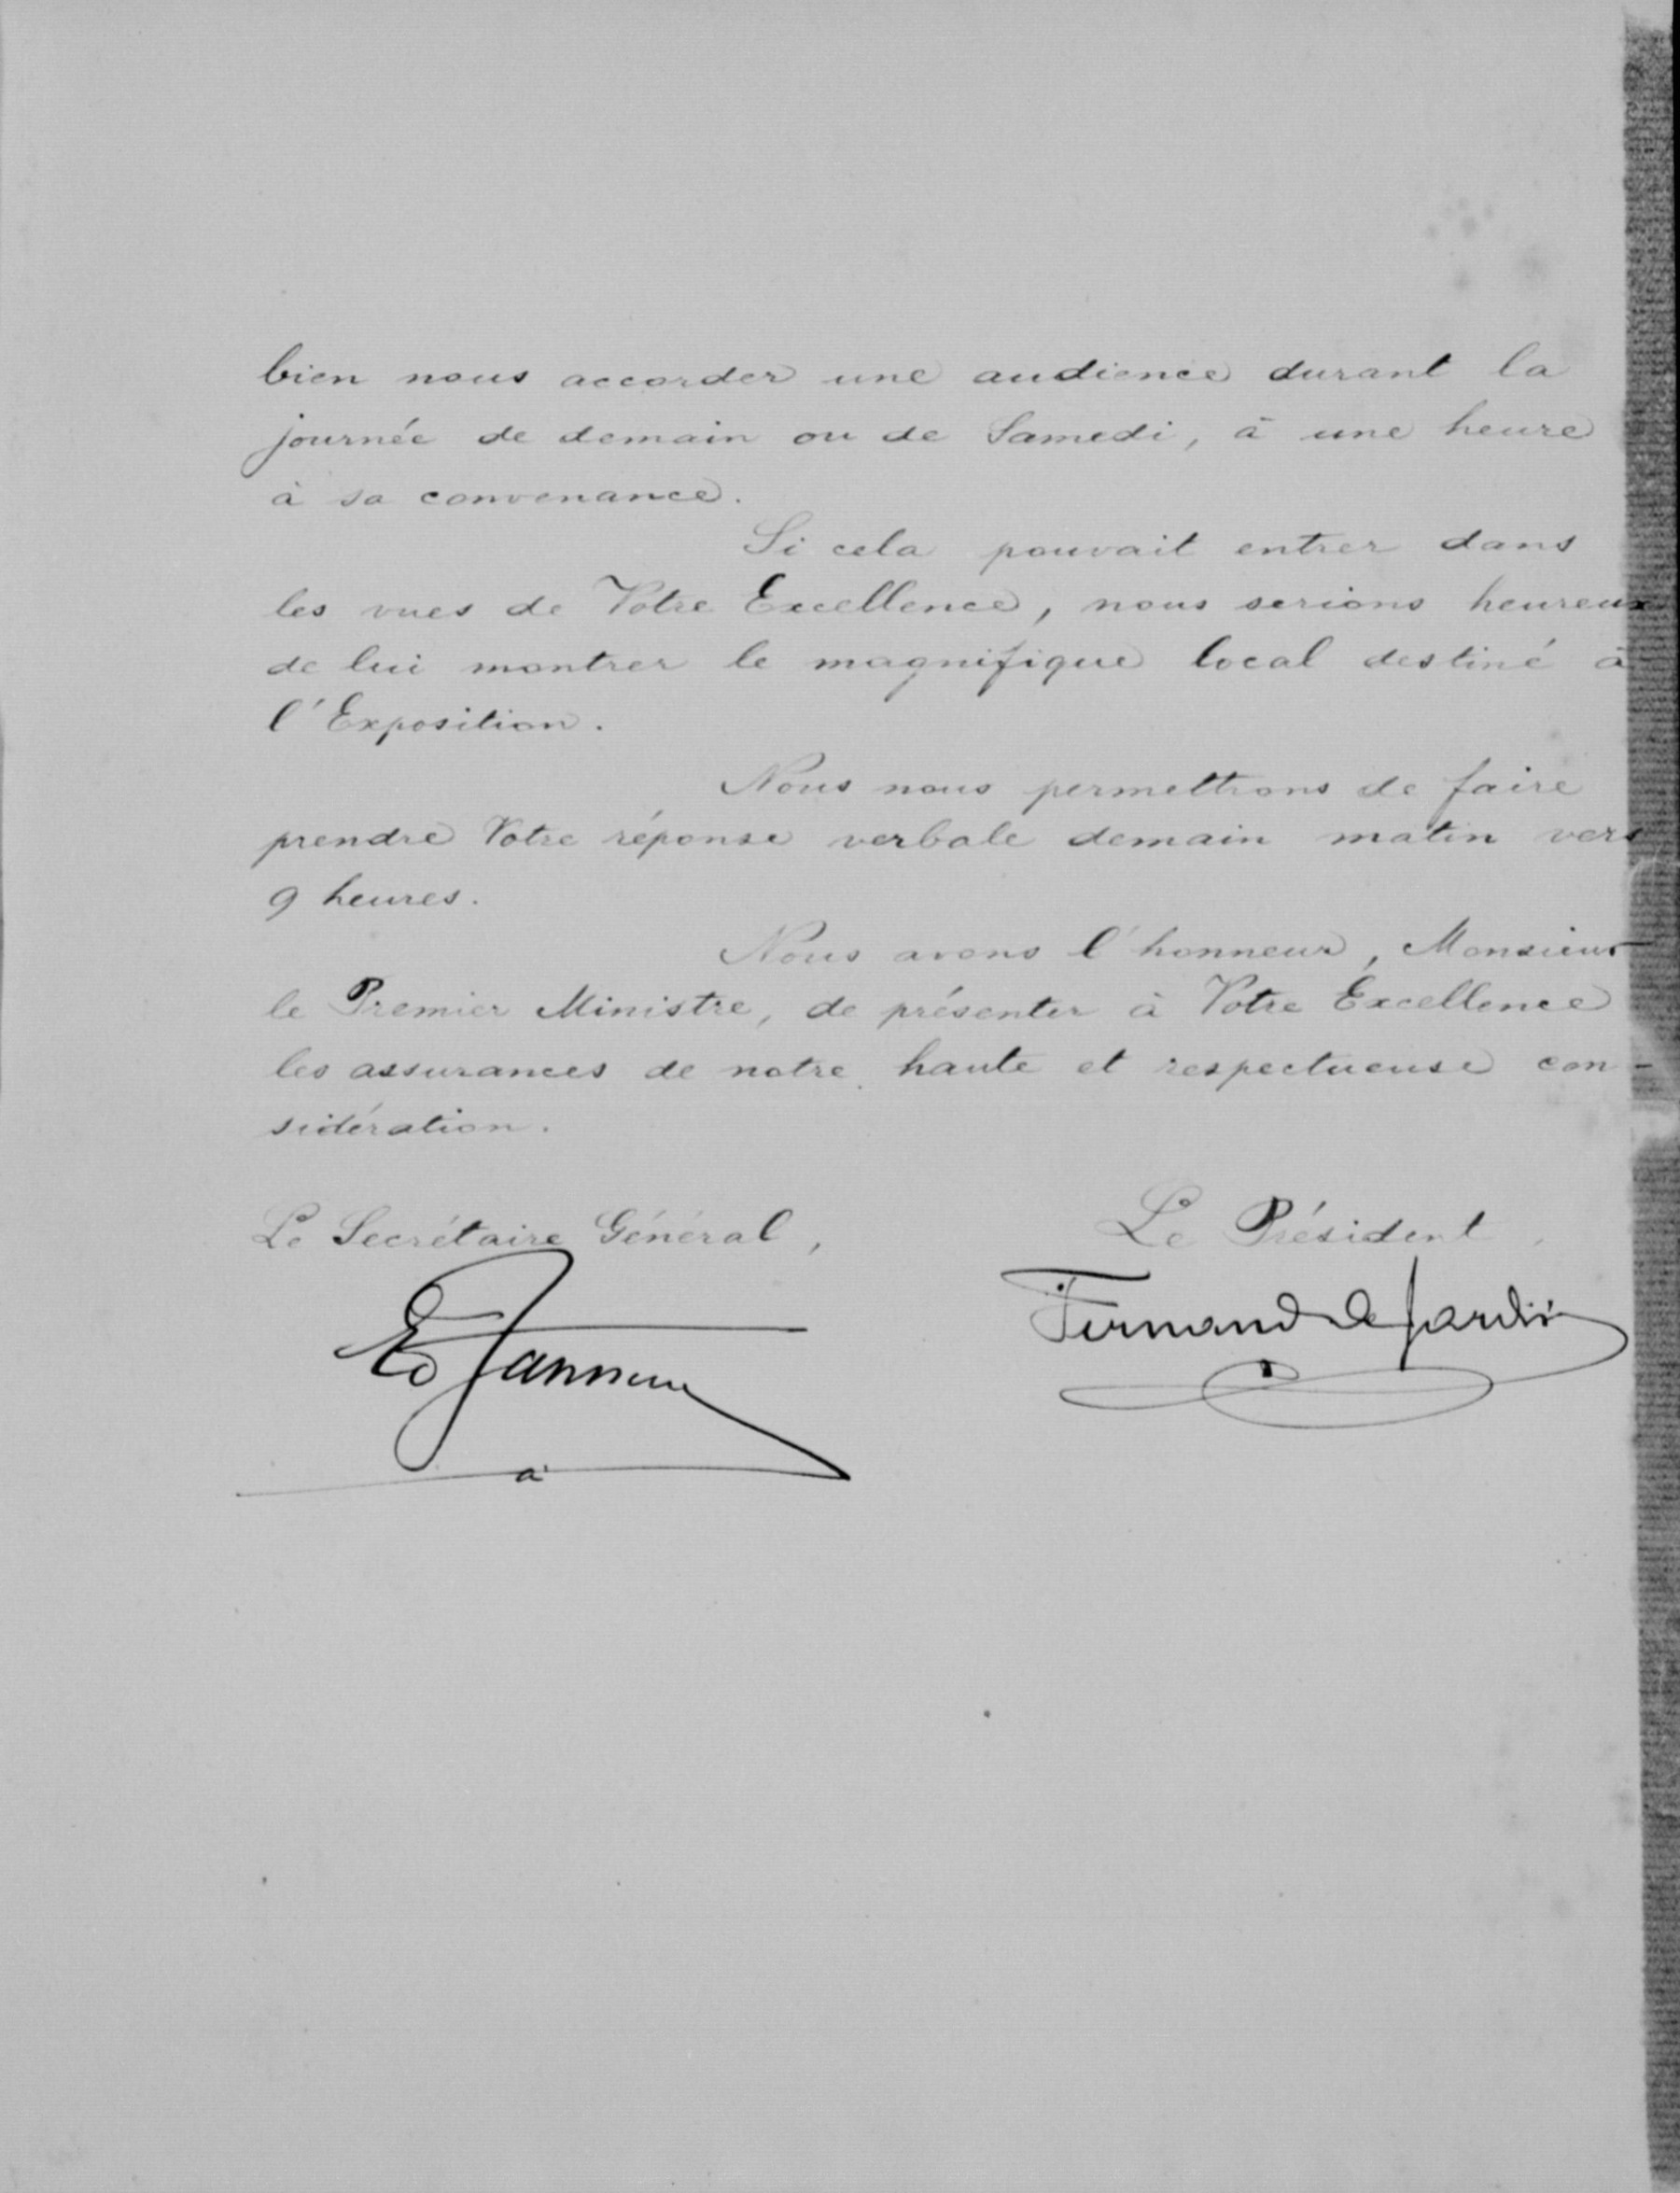 bien nous accorder une audience durant la
journée de demain ou de Samedi, à une heure
à sa convenance.
Si cela pouvait entrer dans
les vues de Votre Excellence, nous serions heureux
de lui montrer le magnifique local destiné à
l'Exposition.
Nous nous permettrons de faire
prendre Votre réponse verbale demain matin vers
9 heures.
Nous avons l'honneur, Monsieur
le Premier Ministre, de présenter à Votre Excellence
les assurances de notre haute et respectueuse con-
sidération.
Le Secrétaire Général,
Le Président,
Fernand de Jardin